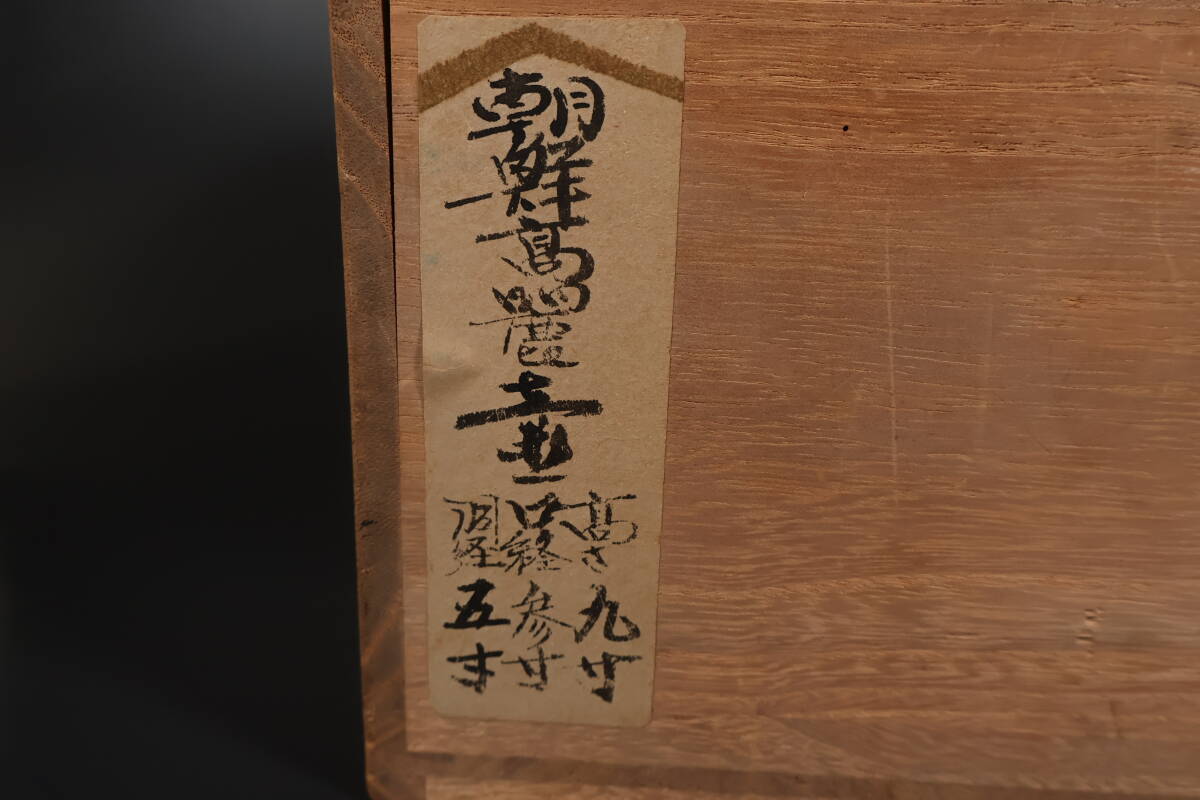 朝鮮高麗壷
高さ九寸
口経参寸
胴経五寸